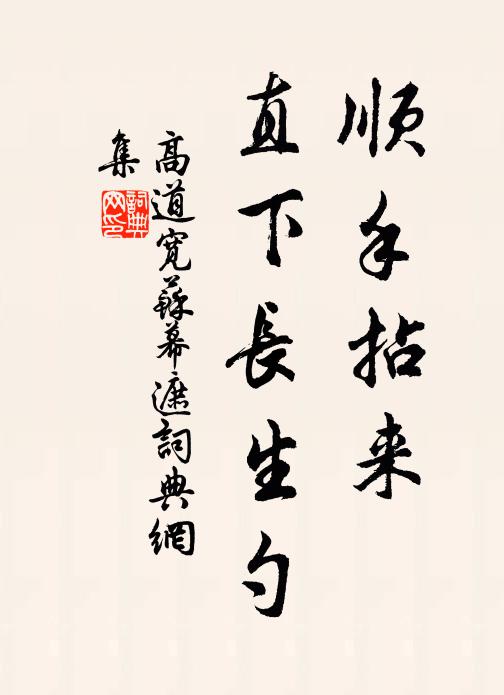 順手拈来
直下長生勺
高道寬蘇幕遮詞典網
集
詞典
网印